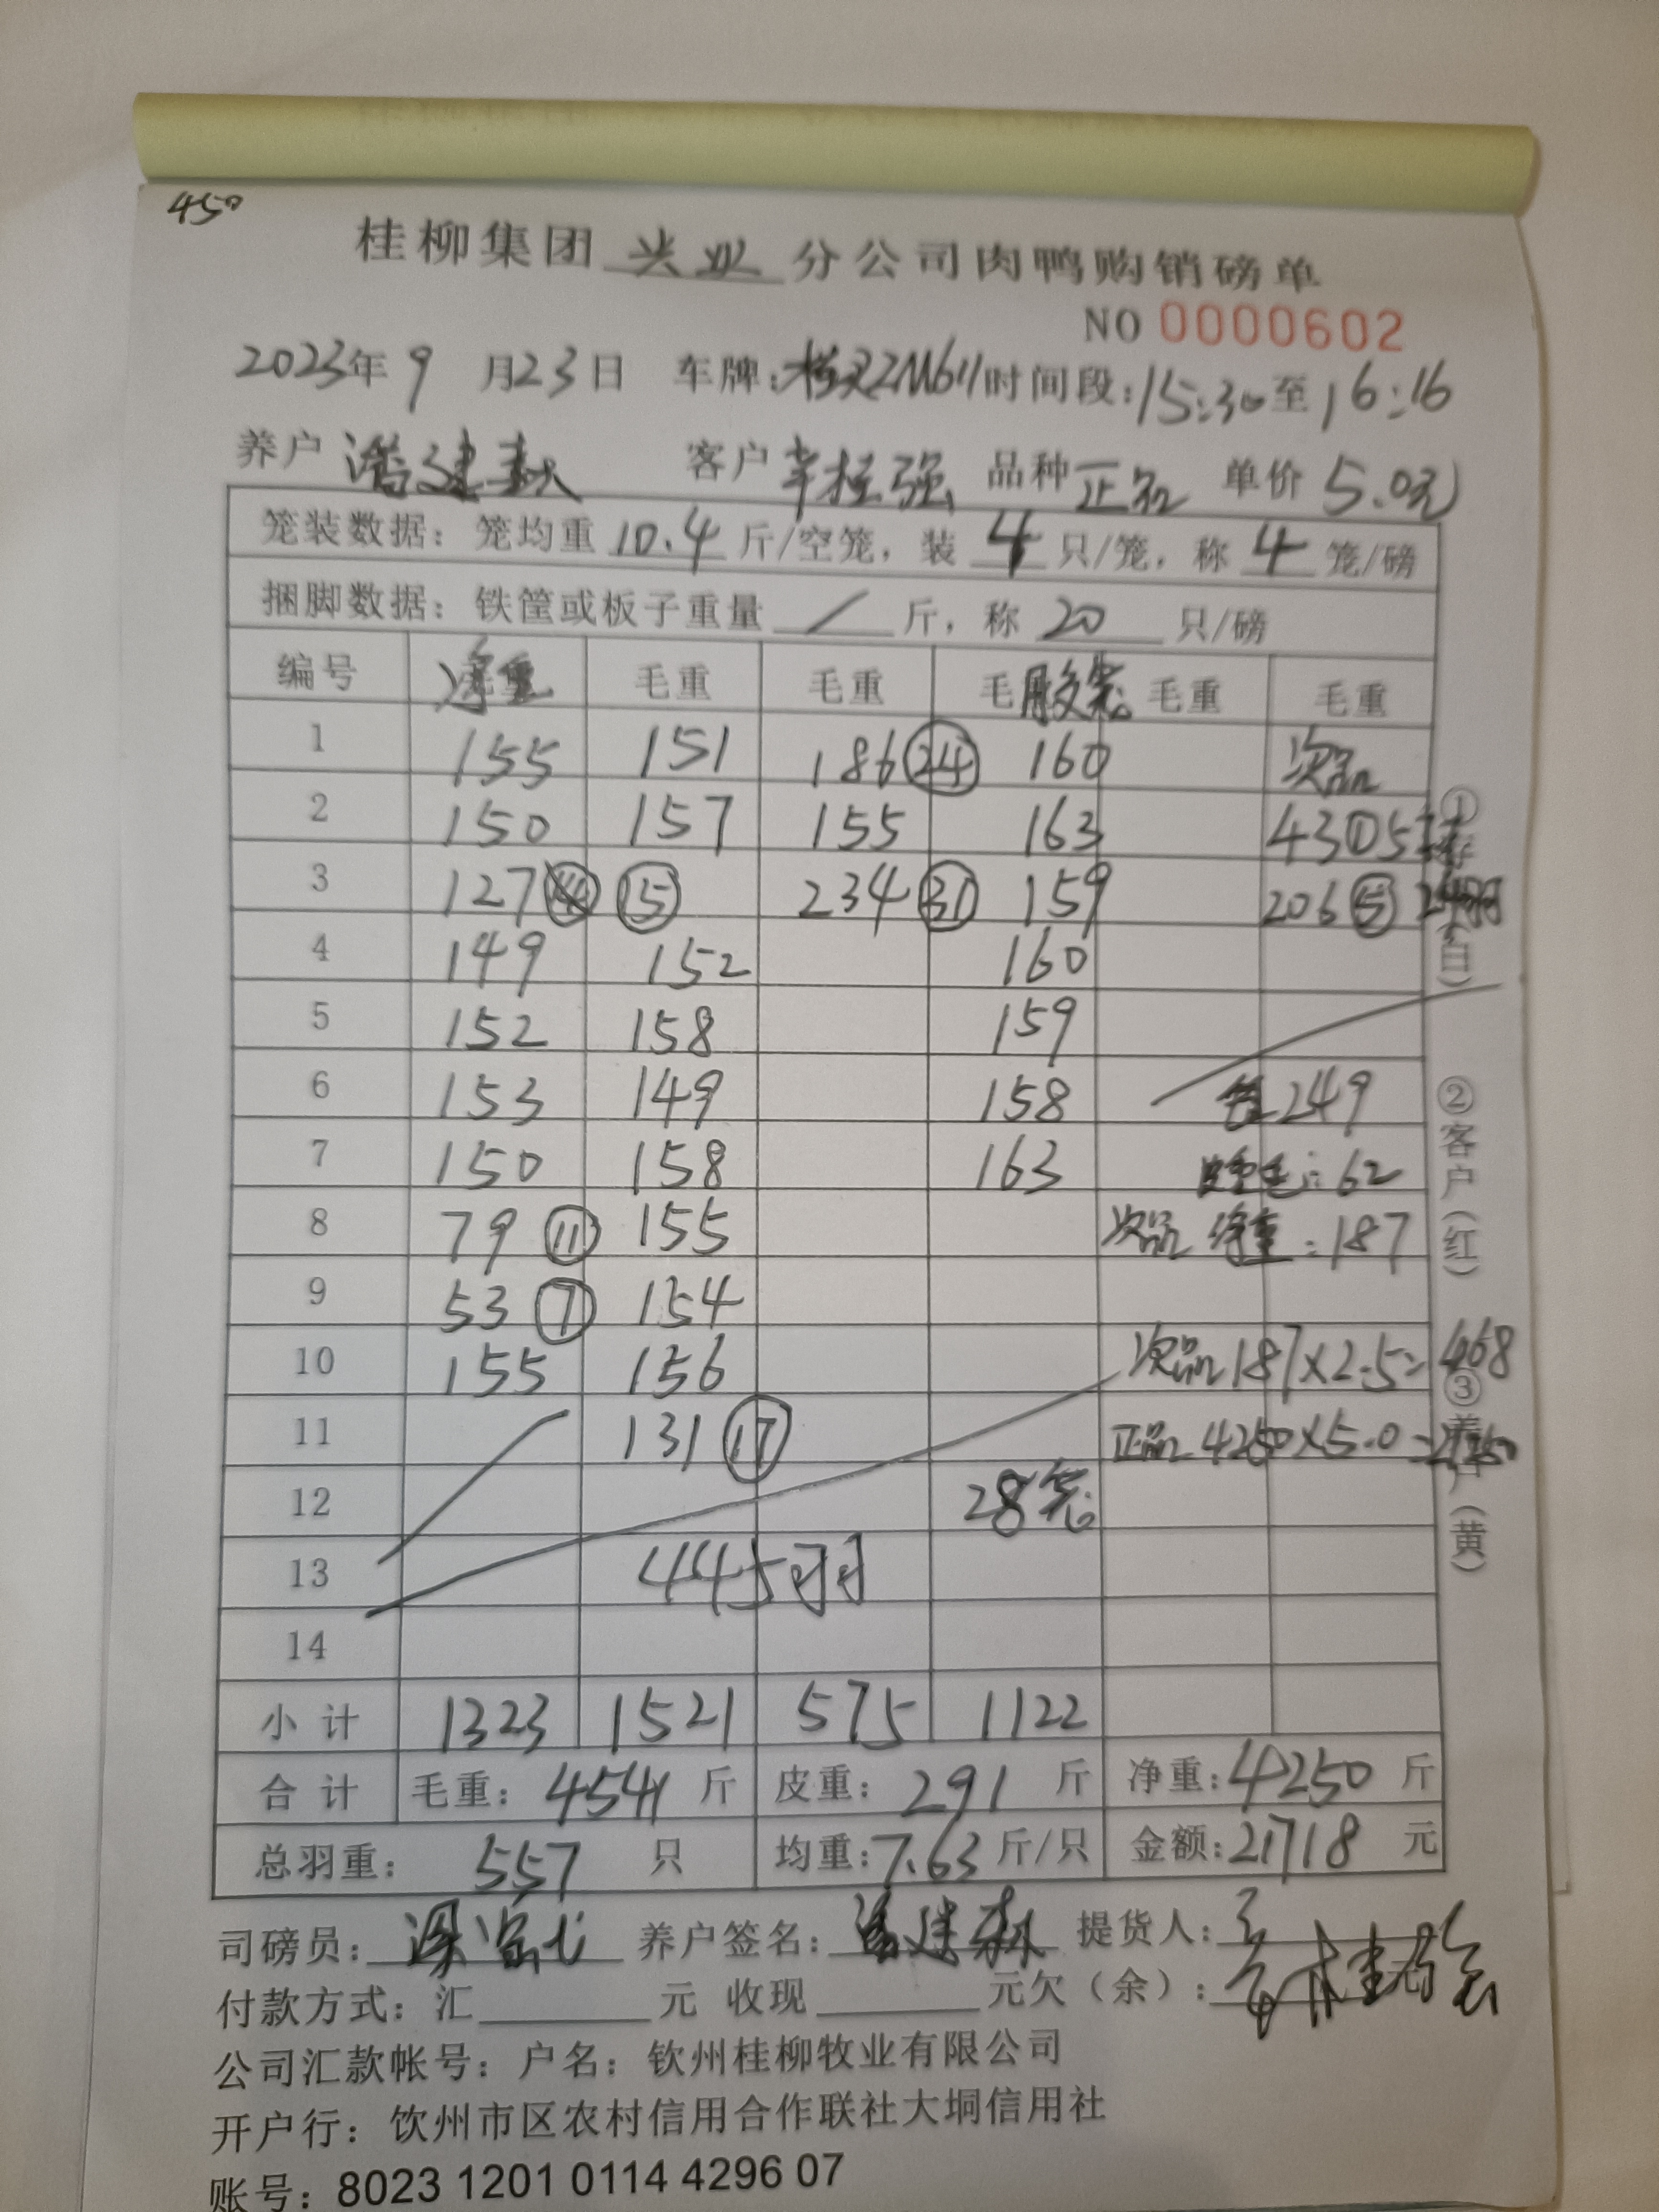 450
桂柳集团 兴业 分公司肉鸭购销磅单
NO 0000602
2023年 9 月23日 车牌: 时间段:15:30至16:16
养户 潘建 客户 桂强 品种 正品 单价 5.0元
笼装数据：笼均重 10.4 斤/空笼，装 4 只/笼，称 4 笼/磅
捆脚数据：铁筐或板子重量 / 斤，称 20 只/磅
编号 净重 毛重 毛重 毛 胶笼 毛重 毛重
1 155 151 186 (24) 160 次品
2 150 157 155 163 43 ①
3 127 (15) 234 (31) 159 206 ⑤
4 149 152 160
5 152 158 159
6 153 149 158 249
7 150 158 163 皮重 62
8 79 (11) 155 次品 净重:187
9 53 (7) 154
10 155 156 次品187×2.5=468
11 131 (17) 正品4250×5.0=21250
12 28笼
13 445羽
14
小计 1323 1521 575 1122
合计 毛重：4541 斤 皮重：291 斤 净重:4250 斤
总羽重： 557 只 均重:7.63 斤/只 金额:21718 元
①
(白)
②客户(红)
③养户(黄)
司磅员： 养户签名： 提货人：
付款方式：汇 元 收现 元欠（余）：
公司汇款帐号：户名：钦州桂柳牧业有限公司
开户行：钦州市区农村信用合作联社大垌信用社
账号：8023 1201 0114 4296 07